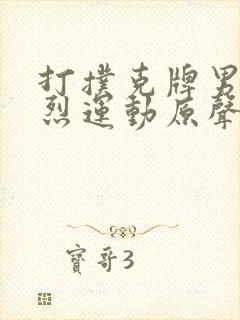 打撲克牌男
烈運動原聲
寶哥3